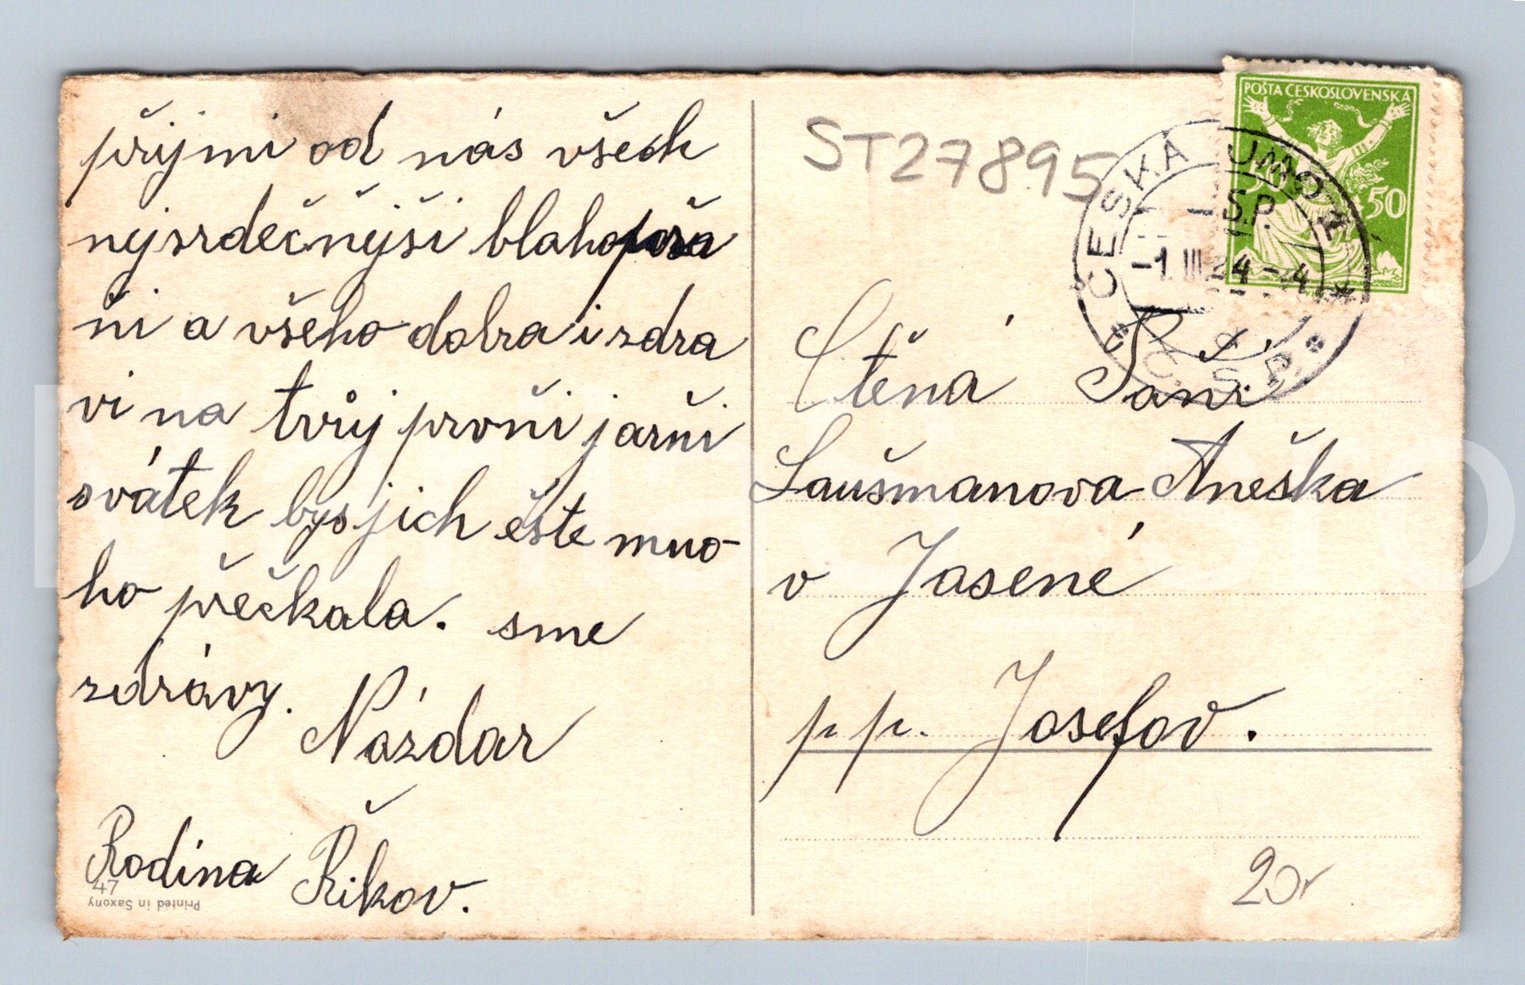 přijmi od nás všech
nejsrdečnějši blahopřa
ni a všeho dobra i zdra
vi na tvůj prvňi jarňi
svátek bys jich ešte mno-
ho přečkala. sme
zdrávy. Názdar
Rodina Řikov.
47
Printed in Saxony
ST27895
POŠTA ČESKOSLOVENSKÁ
50 50
ČESKÁ
-1.III.24-4
Č.S.P.
Ctěná Paní
Laušmanova Aneška
v Jasené
p p. Josefov.